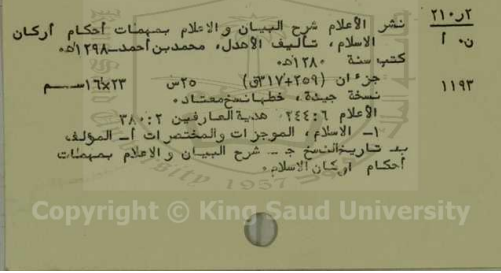 ٢١٠٫٢ نشر الأعلام شرح البيان والاعلام بمهمات أحكام أركان
ن٠ أ الاسلام، تأليف الأهدل، محمد بن أحمد-١٢٩٨هـ.
كتب سنة ١٢٨٠هـ.
١١٩٣ جزءان (٢٥٩+٣١٧ق) ٢٥س ٢٣×١٦سم
نسخة جيدة، خطها نسخ معتاد.
الأعلام ٦:٢٤٤ هدية العارفين ٢:٣٨٠
١- الاسلام، الموجزات والمختصرات أ- المؤلف
ب- تاريخ النسخ ج- شرح البيان والاعلام بمهمات
أحكام أركان الاسلام.
Copyright © King Saud University
1957 University